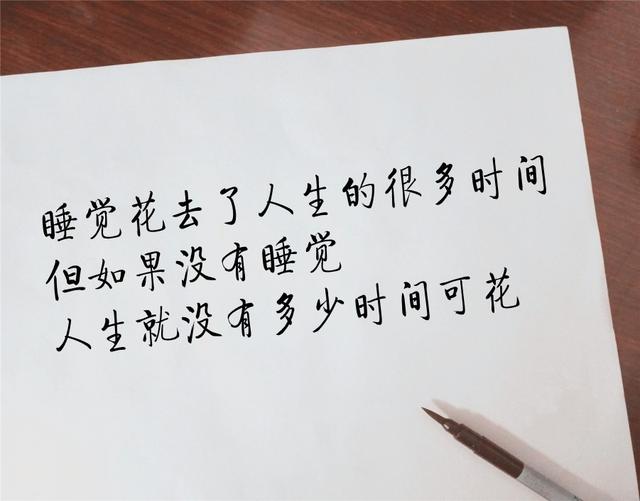 睡觉花去了人生的很多时间
但如果没有睡觉
人生就没有多少时间可花